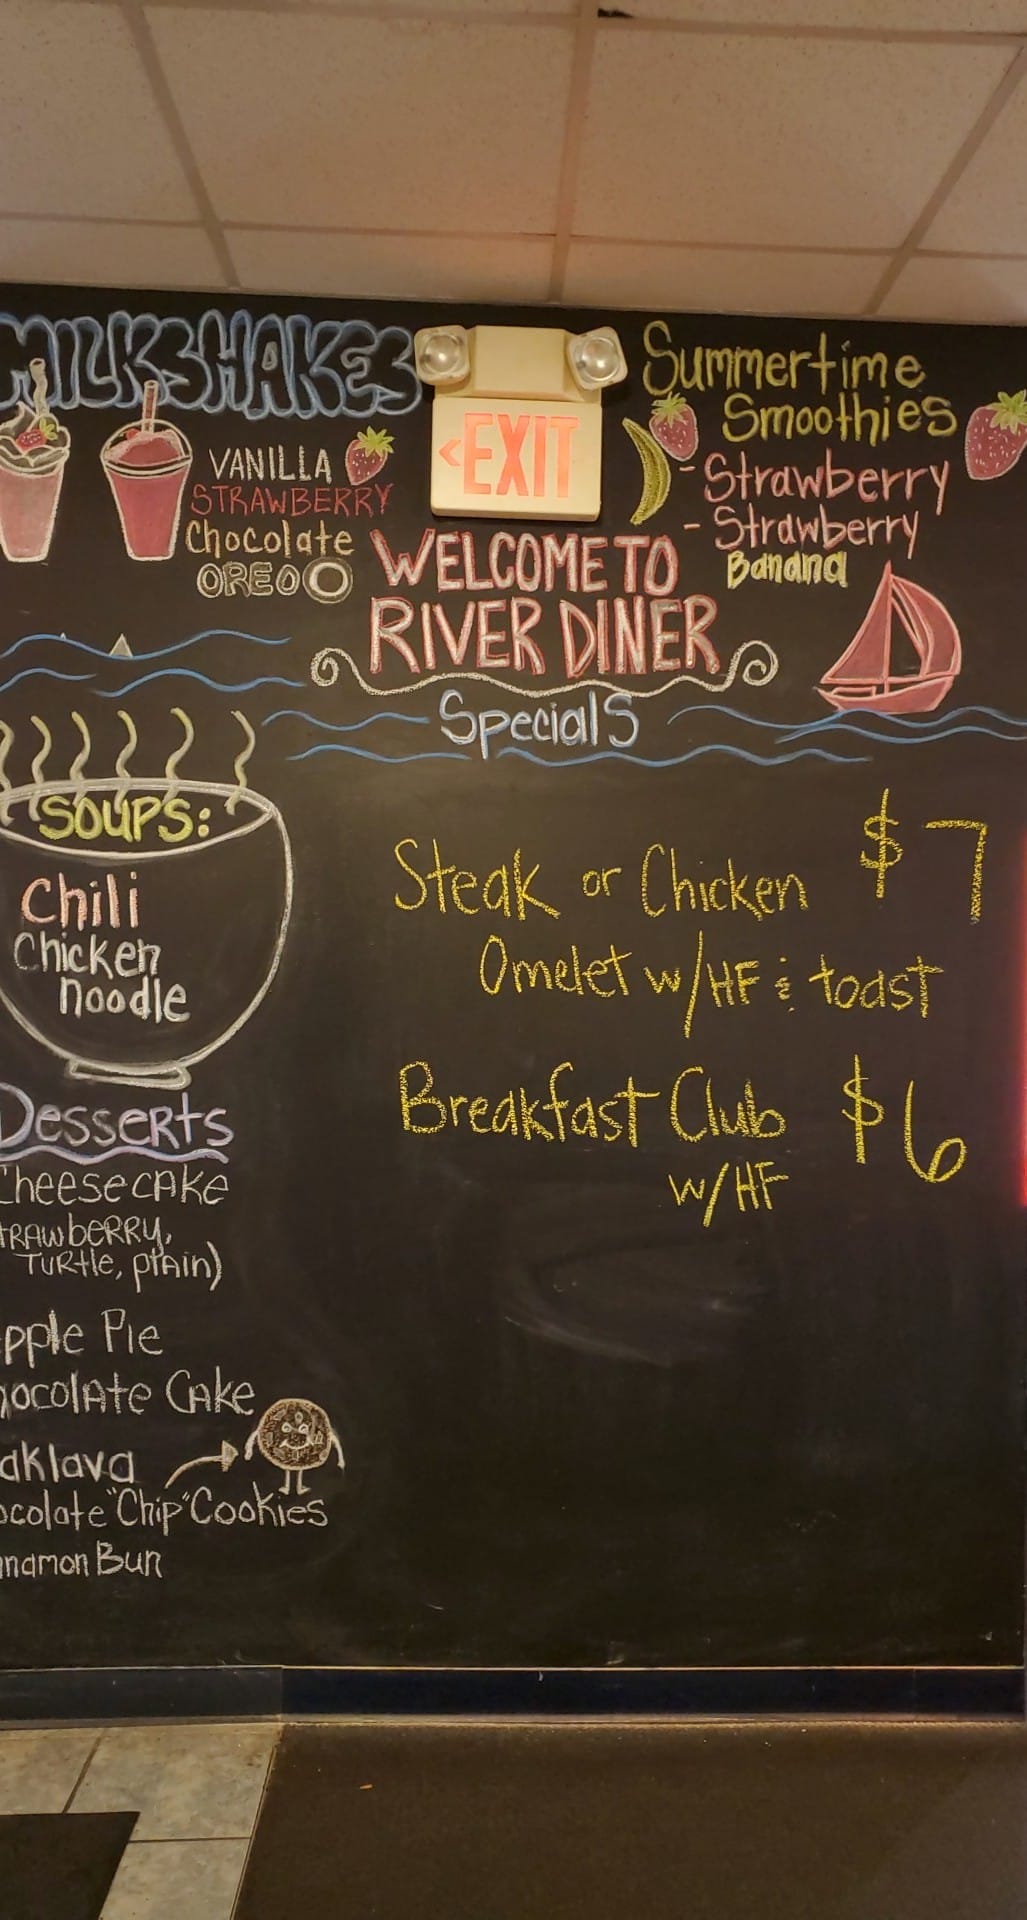 MILKSHAKES
VANILLA
STRAWBERRY
Chocolate
OREO
<EXIT
Summertime
Smoothies
- Strawberry
- Strawberry
Banana
WELCOME TO
RIVER DINER
Specials
SOUPS:
Chili
Chicken
noodle
Steak or Chicken $7
Omelet w/HF & toast
Breakfast Club $6
w/HF
Desserts
Cheesecake
TRAWbeRRy,
TURtle, plAin)
pple Pie
hocolAte CAke
aklava
ocolate "Chip" Cookies
nnamon Bun